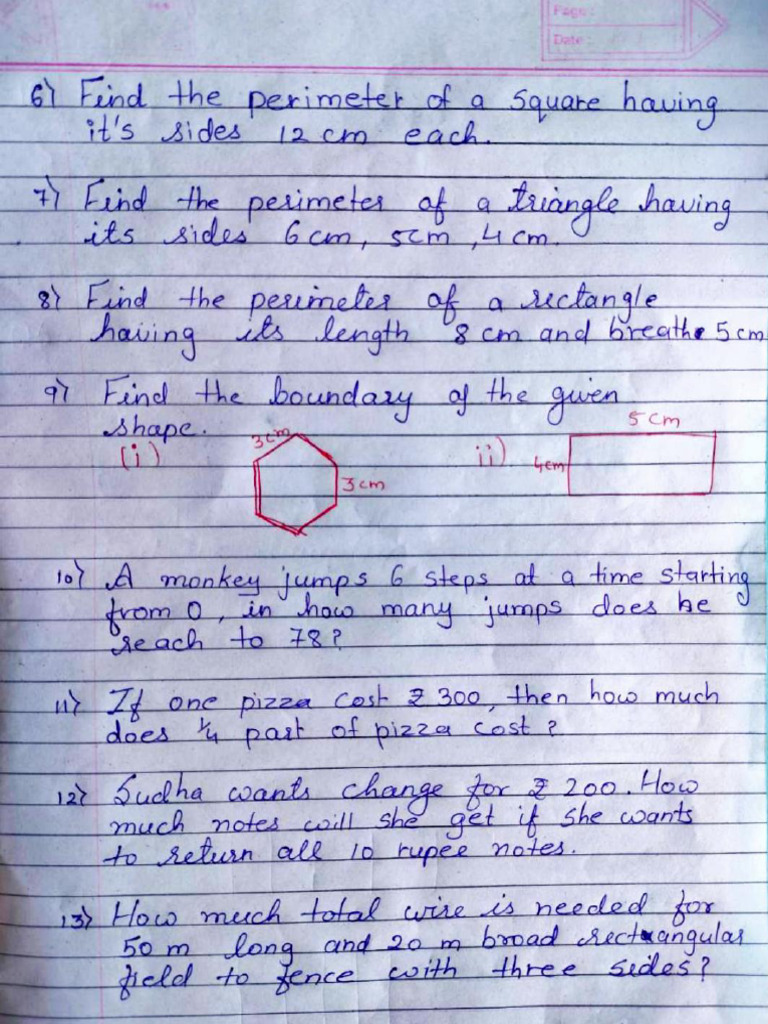 Page:
Date:
6) Find the perimeter of a square having
it's sides 12 cm each.
7) Find the perimeter of a triangle having
its sides 6 cm, 5cm ,4 cm.
8) Find the perimeter of a rectangle
having its length 8 cm and breathe 5 cm
9) Find the boundary of the given
shape.
5 cm
(i) 3 cm ii) 4cm
3 cm
10) A monkey jumps 6 steps at a time starting
from 0, in how many jumps does he
reach to 78?
11) If one pizza cost ₹ 300, then how much
does 1/4 part of pizza cost?
12) Sudha wants change for ₹ 200. How
much notes will she get if she wants
to return all 10 rupee notes.
13) How much total wire is needed for
50 m long and 20 m broad rectangular
field to fence with three sides?